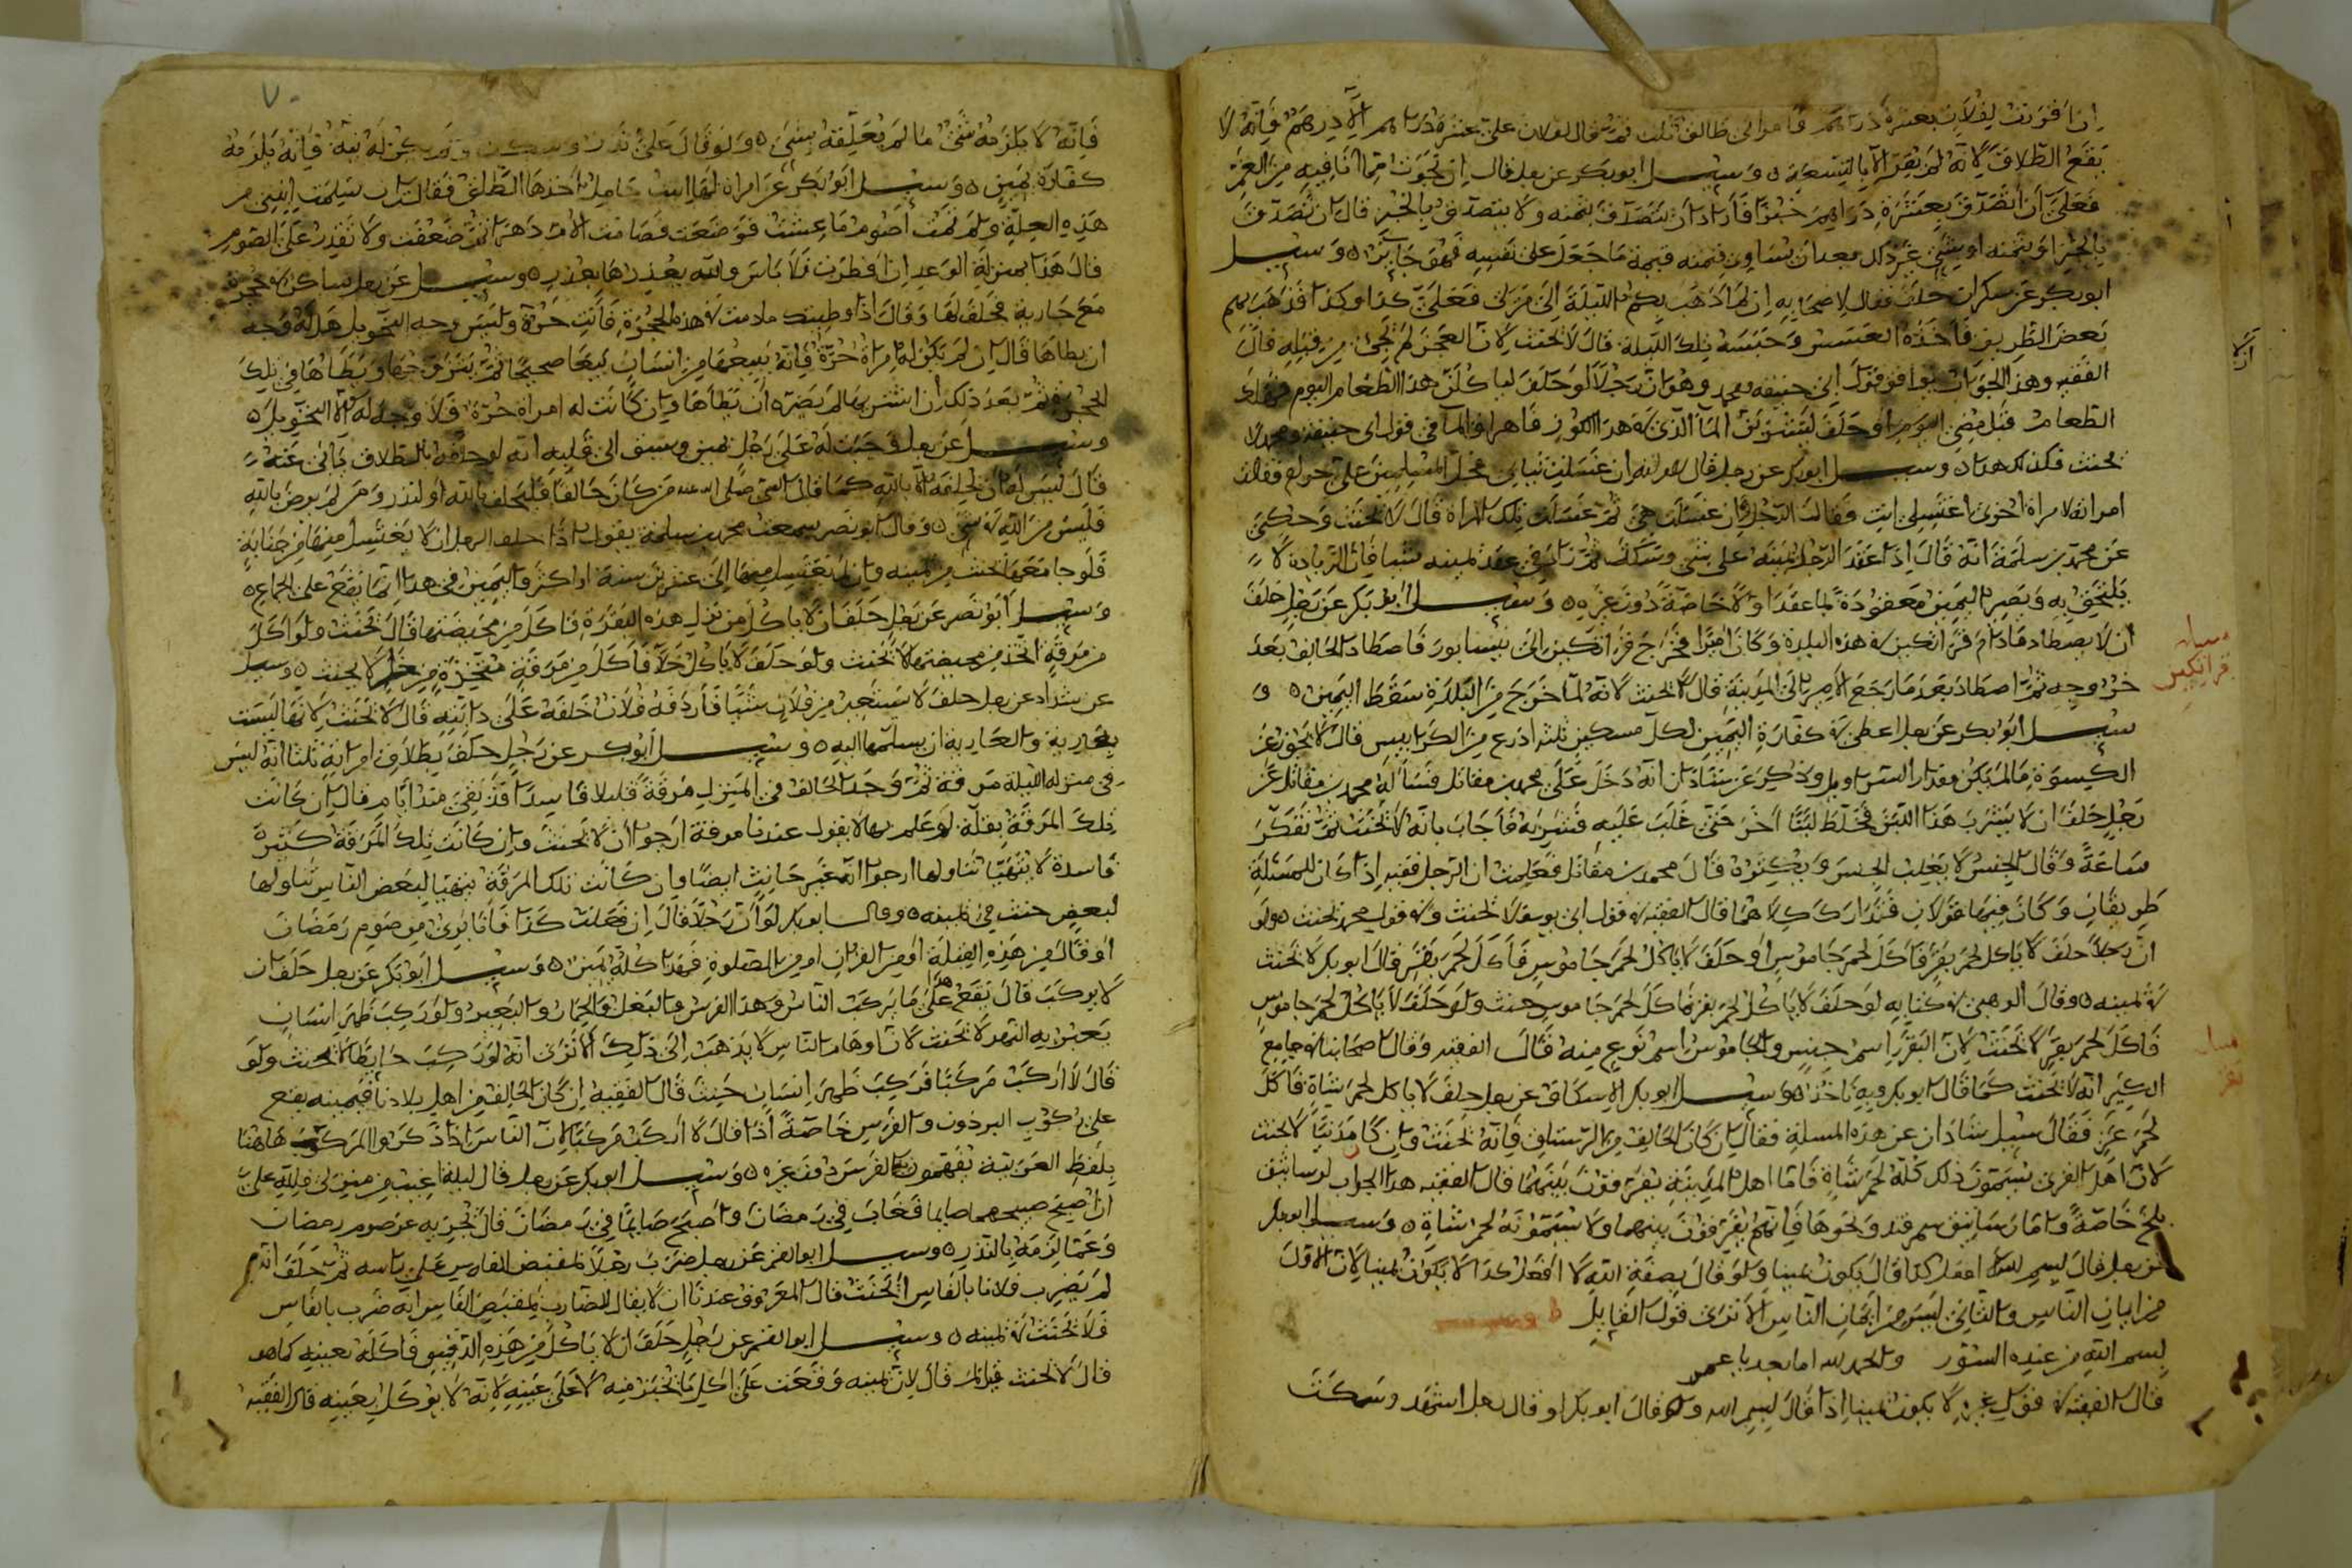 ان اقررت لفلان بعشرة دراهم فامرأتي طالق ثلث ثم قال لفلان علي عشرة دراهم الا درهم فانه لا
يقع الطلاق لانه لم يقر الا بالتسعة وسئل ابو بكر عن رجل قال ان نجوت مما انا فيه من الغم
فعلي ان اتصدق بعشرة دراهم خبزا فأراد ان يتصدق بثمنه ولا يتصدق بالخبز قال ان تصدق
بالخبز او بثمنه او بشئ غير ذلك بعد ان يساوي قيمته قيمة ما جعل على نفسه فهو جائز وسئل
ابو بكر عن سكران حلف فقال لاصحابه ان لم اذهب بكم الليلة الى منزلي فعلي كذا وكذا فذهب بهم
بعض الطريق فأخذه العسس وحبسه تلك الليلة قال لا يحنث لان العجز لم يجئ من قبله قال
الفقيه وهذا الجواب يوافق قول ابي حنيفة ومحمد وهو ان رجلا لو حلف ليأكلن هذا الطعام اليوم
الطعام قبل مضي اليوم او حلف ليشربن الماء الذي في هذا الكوز فاهراق الماء في قول ابي حنيفة ومحمد لا
يحنث فكذلك هذا وسئل ابو بكر عن رجل قال لامرأته ان غسلت ثيابي فحل المسلمين علي حرام فقالت
امرأته لامرأة اخرى اغسلي انت فقالت الرجل فان غسلت هي ثم غسلت تلك المرأة قال لا يحنث وحكي
عن محمد بن سلمة انه قال اذا عقد الرجل يمينه على شئ وسكت ثم زاد في عقد يمينه شيئا فان الزيادة لا
يلتحق به وتصير اليمين معقودة لما عقد اولا خاصة دون غيره وسئل ابو بكر عن رجل حلف
ان لا يصطاد مادام قراتكين في هذه البلدة وكان اميرا فخرج قراتكين الى نيسابور فاصطاد الحالف بعد
خروجه ثم اصطاد بعد ما رجع الامير الى المدينة قال لا يحنث لانه لما خرج من البلدة سقط اليمين و
سئل ابو بكر عن رجل اعطى في كفارة اليمين لكل مسكين ثلثة اذرع من الكرابيس قال لا يجوز عن
الكسوة ما لم يكن مقدار السراويل وذكر عن شداد انه دخل على محمد بن مقاتل فسأله محمد بن مقاتل عن
رجل حلف ان لا يشرب هذا اللبن فخلط لبنا اخر حتى غلب عليه فشربه فاجاب بانه لا يحنث ثم تفكر
ساعة وقال الجنس لا يغلب الجنس ويكثره قال محمد بن مقاتل فعلمت ان الرجل فقيه اذ كان للمسئلة
طريقان وكان فيها قولان فتدارك كلاهما قال الفقيه في قول ابي يوسف لا يحنث وفي قول محمد يحنث ولو
ان رجلا حلف لا يأكل لحم بقر فأكل لحم جاموس او حلف لا يأكل لحم جاموس فأكل لحم بقر قال ابو بكر لا يحنث
في يمينه وقال في كتابه لو حلف لا يأكل لحم بقر فأكل لحم جاموس حنث ولو حلف لا يأكل لحم جاموس
فأكل لحم بقر لا يحنث لان البقر اسم جنس والجاموس اسم نوع منه قال الفقيه وقال اصحابنا في جامع
الكبير انه لا يحنث كما قال ابو بكر وبه نأخذ وسئل ابو بكر الاسكاف عن رجل حلف لا يأكل لحم شاة فأكل
لحم عنز فقال سئل شاذان عن هذه المسئلة فقال ان كان الحالف من الرستاق فانه يحنث وان كان مدنيا لا يحنث
لان اهل القرى يسمون ذلك كله لحم شاة فأما اهل المدينة يفرقون بينهما قال الفقيه هذا الجواب لرساتيق
بلخ خاصة واما رساتيق سمرقند ونحوها فانهم يفرقون بينهما ولا يسمونه لحم شاة وسئل ابو بكر
عن رجل قال بسم الله افعل كذا قال يكون يمينا ولو قال بصفة الله لا افعل كذا لا يكون يمينا لان الاول
من ايمان الناس والثاني ليس من ايمان الناس الا ترى قول القايل
بسم الله من عنده السور والحمد لله اما بعد يا عمر
قال الفقيه في قول غيره لا يكون يمينا اذا قال بسم الله ولو قال ابو بكر لو قال رجل اشهد وسكت
مسئلة
قراتكين
مسئلة
بقر
٧٠
فانه لا يلزمه شئ ما لم يعلقه بشئ ولو قال علي نذر وسكت ولم يكن له نية فانه يلزمه
كفارة يمين وسئل ابو بكر عن امرأة لها ابنت حامل اخذها الطلق فقالت ان سلمت ابنتي من
هذه العلة ولم تمت اصوم ما عشت فوضعت فصامت الام دهرا ثم ضعفت ولا تقدر على الصوم
قال هذا بمنزلة الوعد ان افطرت فلا بأس والله يعذرها بعذر وسئل عن رجل ساكن في حجرة
مع جارية فحلف لها وقال اذا وطيتك مادمت في هذه الحجرة فأنت حرة وليس وجه التحويل هل له وجه
ان يطأها قال ان لم يكن له امرأة حرة فانه يبيعها من انسان بيعا صحيحا ثم يتزوجها ويطأها في تلك
الحجرة ثم بعد ذلك ان اشتريها لم يضره ان يطأها وان كانت له امرأة حرة فلا وجه له الا التحويل
وسئل عن رجل وجبت له على رجل يمين وسبق الى قلبه انه لو حلفه بالطلاق يأبى عنه
قال ليس له ان يحلفه الا بالله كما قال النبي صلى الله عليه من كان حالفا فليحلف بالله او ليذر ومن لم يرض بالله
فليس من الله في شئ وقال ابو نصر سمعت محمد بن سلمة يقول اذا حلف الرجل ان لا يغتسل منها من جنابة
فلو جامعها يحنث من يمينه وان لم يغتسل منها الى عشرين سنة او اكثر فاليمين في هذا انما يقع على الجماع
وسئل ابو نصر عن رجل حلف ان لا يأكل من نزل هذه البقرة فأكل من مخيضتها قال يحنث ولو اكل
من مرقة اتخذ من مخيضتها لا يحنث ولو حلف لا يأكل خلا فأكل من مرقة متخذة من خل لا يحنث وسئل
عن شداد عن رجل حلف لا يستعير من فلان شيئا فأردفه فلان خلفه على دابته قال لا يحنث لانها ليست
بعارية والعارية ان يسلمها اليه وسئل ابو بكر عن رجل حلف بطلاق امرأته ثلثا انه ليس
في منزله الليلة مرقة ثم وجد الحالف في المنزل مرقة قليلا فاسدا قد بقي منذ ايام قال ان كانت
تلك المرقة بقلة لو علم بها لا يقول عندنا مرقة ارجو ان لا يحنث وان كانت تلك المرقة كثيرة
فاسدة لا يتهيأ تناولها ارجو انه غير حانث ايضا وان كانت تلك المرقة يتهيأ لبعض الناس تناولها
لبعض حنث في يمينه وقال ابو بكر لو ان رجلا قال ان فعلت كذا فانا برئ من صوم رمضان
او قال من هذه القبلة او من القران او من الصلوة فهذا كله يمين وسئل ابو بكر عن رجل حلف ان
لا يركب قال يقع على ما يركب الناس وهذا الفرس والبغل والحمار والبعير ولو ركب ظهر انسان
يعبر به النهر لا يحنث لان اوهام الناس لا يذهب الى ذلك الا ترى انه لو ركب حايطا لا يحنث ولو
قال لا اركب مركبا فركب ظهر انسان حنث قال الفقيه ان كان الحالف من اهل بلادنا فيمينه يقع
على ركوب البرذون والفرس خاصة اذا قال لا اركب مركبا لان الناس اذا ذكروا المركب هاهنا
بلفظ العربية يفهمون الفرس دون غيره وسئل ابو بكر عن رجل قال ليلة
ان اصبح صايما فغاب في رمضان واصبح صايما في رمضان قال يجزيه عن صوم رمضان
وعما لزمه بالنذر وسئل ابو القسم عن رجل ضرب رجلا بمقبض الفاس على راسه ثم حلف انه
لم يضرب فلانا بالفاس ايحنث قال المعروف عندنا ان لا يقال للضارب بمقبض الفاس انه ضرب بالفاس
فلا يحنث في يمينه وسئل ابو القسم عن رجل حلف ان لا يأكل من هذه الدقيق فأكله بعينه كما هو
قال لا يحنث قيل لم قال لان يمينه وقعت على اكل ما يخبز منه لا على عينه لانه لا يؤكل بعينه قال الفقيه